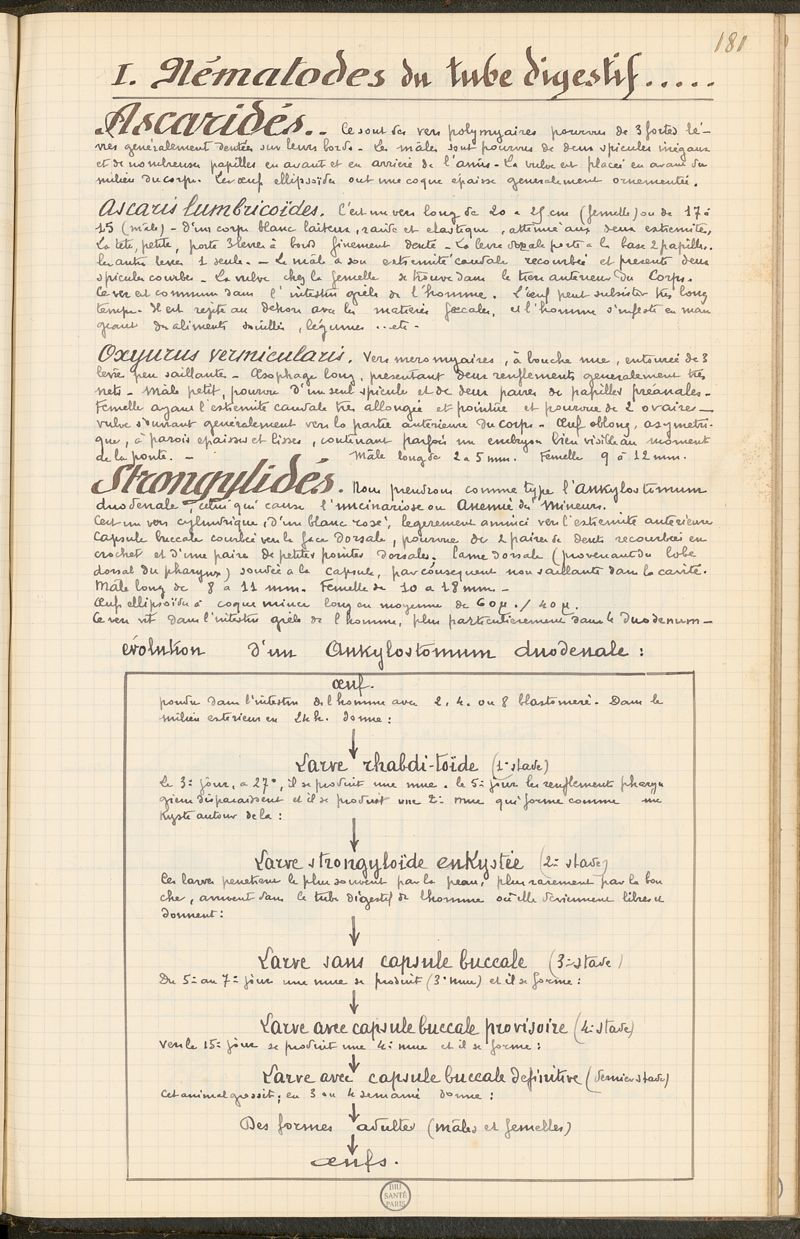 181
I. Nématodes du tube digestif.....
Ascaridés.- Ce sont des vers polymyaires pourvus de 3 fortes lè-
vres généralement dentées sur leurs bords - Les mâles sont pourvus de deux spicules inégaux
et de nombreuses papilles en avant et en arrière de l'anus - La vulve est placée en avant du
milieu du corps. Les œufs ellipsoïdes ont une coque épaisse généralement ornementée.
Ascaris lumbricoïdes. C'est un vers long de 20 à 25 cm (femelle) ou de 17 à
15 (mâle) - d'un corps blanc laiteux, raide et élastique, atténué aux deux extrémités.
La tête, petite, porte 3 lèvres à bord finement denté - La lèvre dorsale porte à la base 2 papilles.
les autres lèvres 1 seule. - Le mâle a son extrémité caudale recourbée et présente deux
spicules courbes - La vulve chez la femelle se trouve dans le tiers antérieur du Corps.
Ce ver est commun dans l'intestin grêle de l'homme. L'œuf peut subsister très long
temps. Il est rejeté au dehors avec les matières fœcales, et l'homme s'infeste en man
geant des aliments souillés, légumes ..etc -
Oxyurus vermicularis. Vers meromyaires, à bouche nue, entourée de 3
lèvres peu saillantes - Œsophage long, présentant deux renflements généralement très
nets - Mâle petit, pourvu d'un seul spicule et de deux paires de papilles préanales -
Femelle ayant l'extrémité caudale très allongée et pointue et pourvue de 2 ovaires -
vulve s'ouvrant généralement vers la partie antérieure du corps - Œuf oblong, asymétri-
que, à parois épaisses et lisses, contenant parfois un embryon bien visible au moment
de la ponte. - Mâle long de 2 à 5 mm. Femelle 9 à 12 mm.
Strongylidés. Nous prendrons comme type l'Ankylostomum
duodenale, celui qui cause l'uncinariose ou Anémie des Mineurs.
C'est un vers cylindrique, d'un blanc rosé, légèrement aminci vers l'extrémité antérieure
Capsule buccale courbée vers la face Dorsale, pourvue de 2 paires de dents recourbées en
crochet et d'une paire de petites pointes Dorsales. Lame dorsale (provenant du lobe
dorsal du pharynx) soudée à la capsule, par conséquent non saillante dans la cavité.
Mâle long de 8 à 11 mm. Femelle de 10 à 18 mm -
Œufs ellipsoïdes à coque mince long en moyenne de 60 µ / 40 µ.
Ce vers vit dans l'intestin grêle de l'homme, plus particulièrement dans le duodenum -
évolution d'un Ankylostomum duodenale :
œuf.
pondu dans l'intestin de l'homme avec 2. 4. ou 8 blastomère. Dans le
milieu extérieur en 24 h. donne :
Larve rhabdi-toïde (1er stade)
Le 3e jour, à 27°, il se produit une mue. le 5e jour les renflements pharyn
giens disparaissent et il se produit une 2e mue qui forme comme un
Kyste autour de la :
Larve strongyloïde enkystée (2e stade)
Ces larves pénètrent le plus souvent par la peau, plus rarement par la bou
che, arrivent dans le tube digestif de l'homme où elle deviennent libres et
donnent :
Larve sans capsule buccale (3e stade)
Du 5e au 7e jour une mue se produit (3e mue) et il se forme :
Larve avec capsule buccale provisoire (4e stade)
Vers le 15e jour se produit une 4e mue et il se forme :
Larve avec capsule buccale définitive (dernier stade)
Cet animal grossit, en 3 ou 4 semaine donne :
Des formes adultes (mâles et femelles)
œufs.
BIU
SANTÉ
PARIS